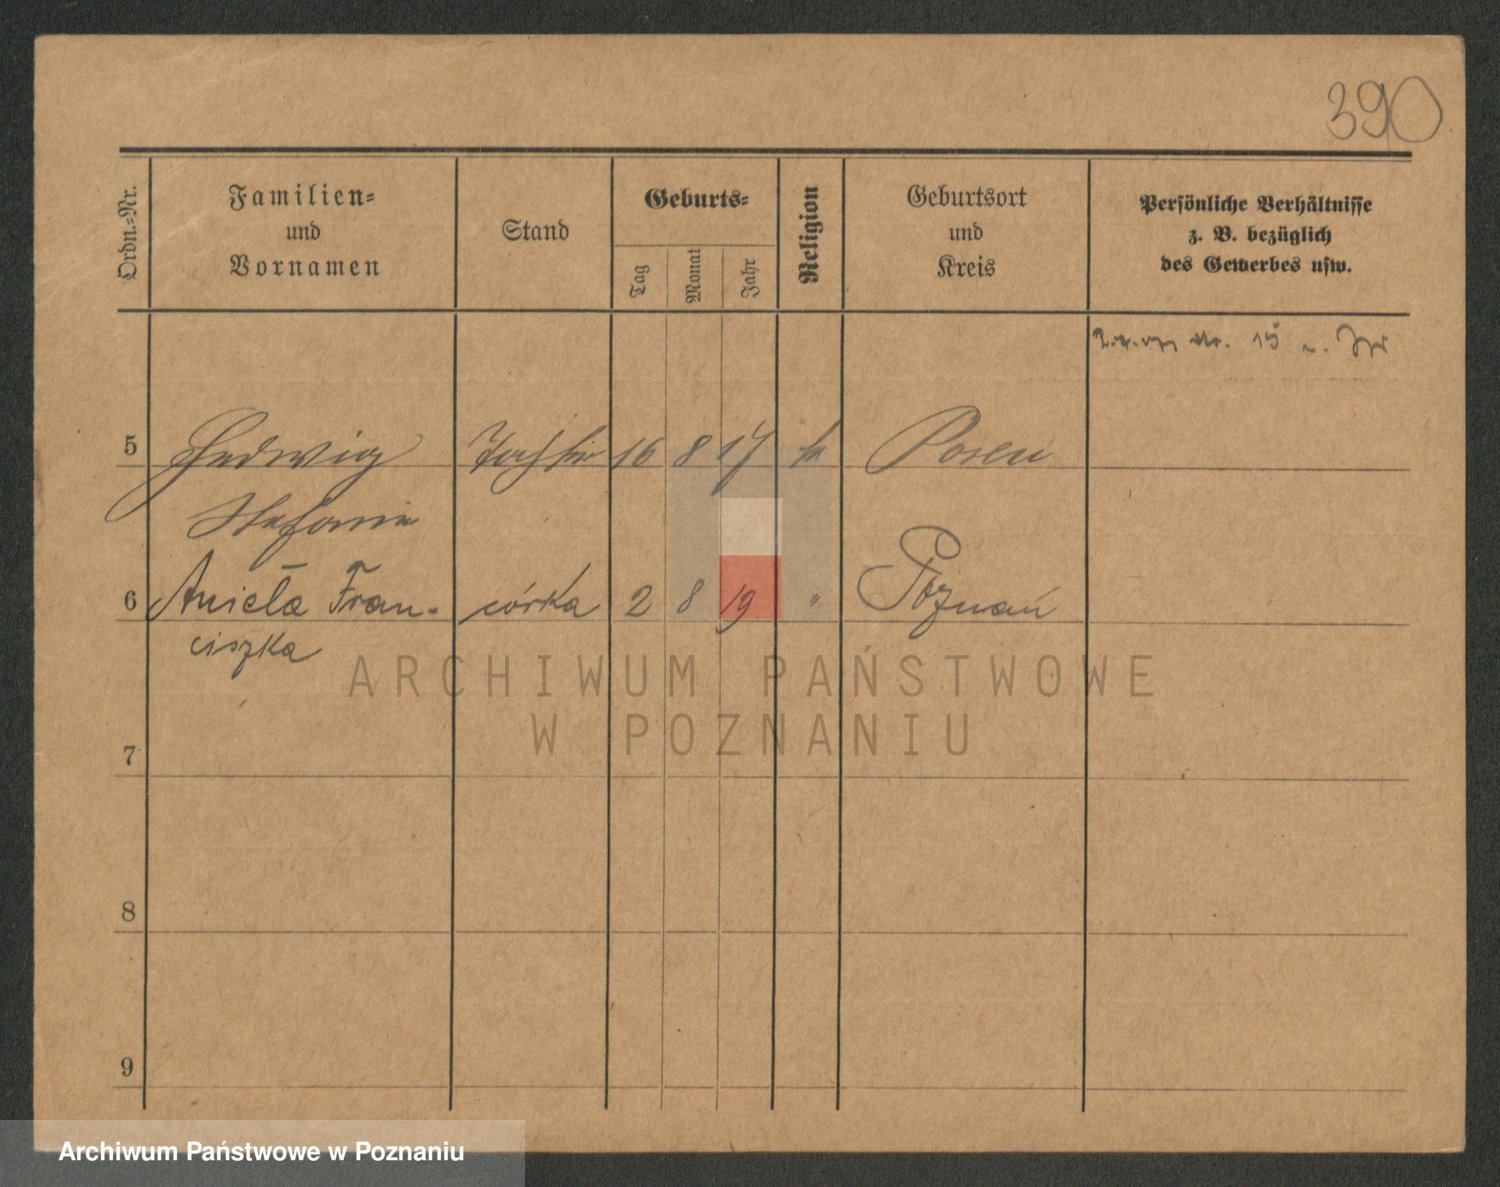 390
Ordn.-Nr.
Familien-
und
Vornamen
Stand
Geburts-
Tag
Monat
Jahr
Religion
Geburtsort
und
Kreis
Persönliche Verhältnisse
z. B. bezüglich
des Gewerbes usw.
15
5 Hedwig Tochter 16 8 17 ka Posen
Stefanie
6 Aniela Fran- córka 2 8 19 " Poznań
ciszka
ARCHIWUM PAŃSTWOWE
W POZNANIU
7
8
9
Archiwum Państwowe w Poznaniu